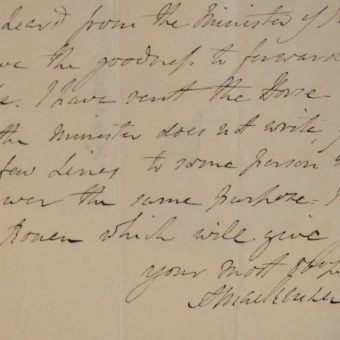 heard from the Minister of
the goodness to forward
I have sent the Horse
the Minister does not write,
few lines to some person
the same purpose -
Rouen which will give
your most